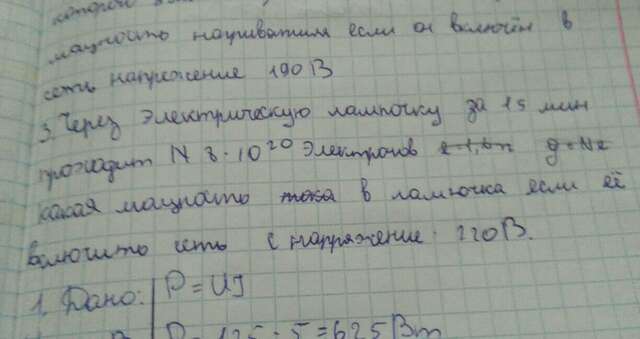 которой
мащность нагриватиля если он включён в
сеть напряжение 190В
3. Через электрическую лампочку за 15 мин
проходит N 8·10²⁰ электронов q=Ne
какая мащность тока в лампочка если её
включить сеть с напряжение 220В.
1. Дано: P=UJ
P=125·5=625Вт